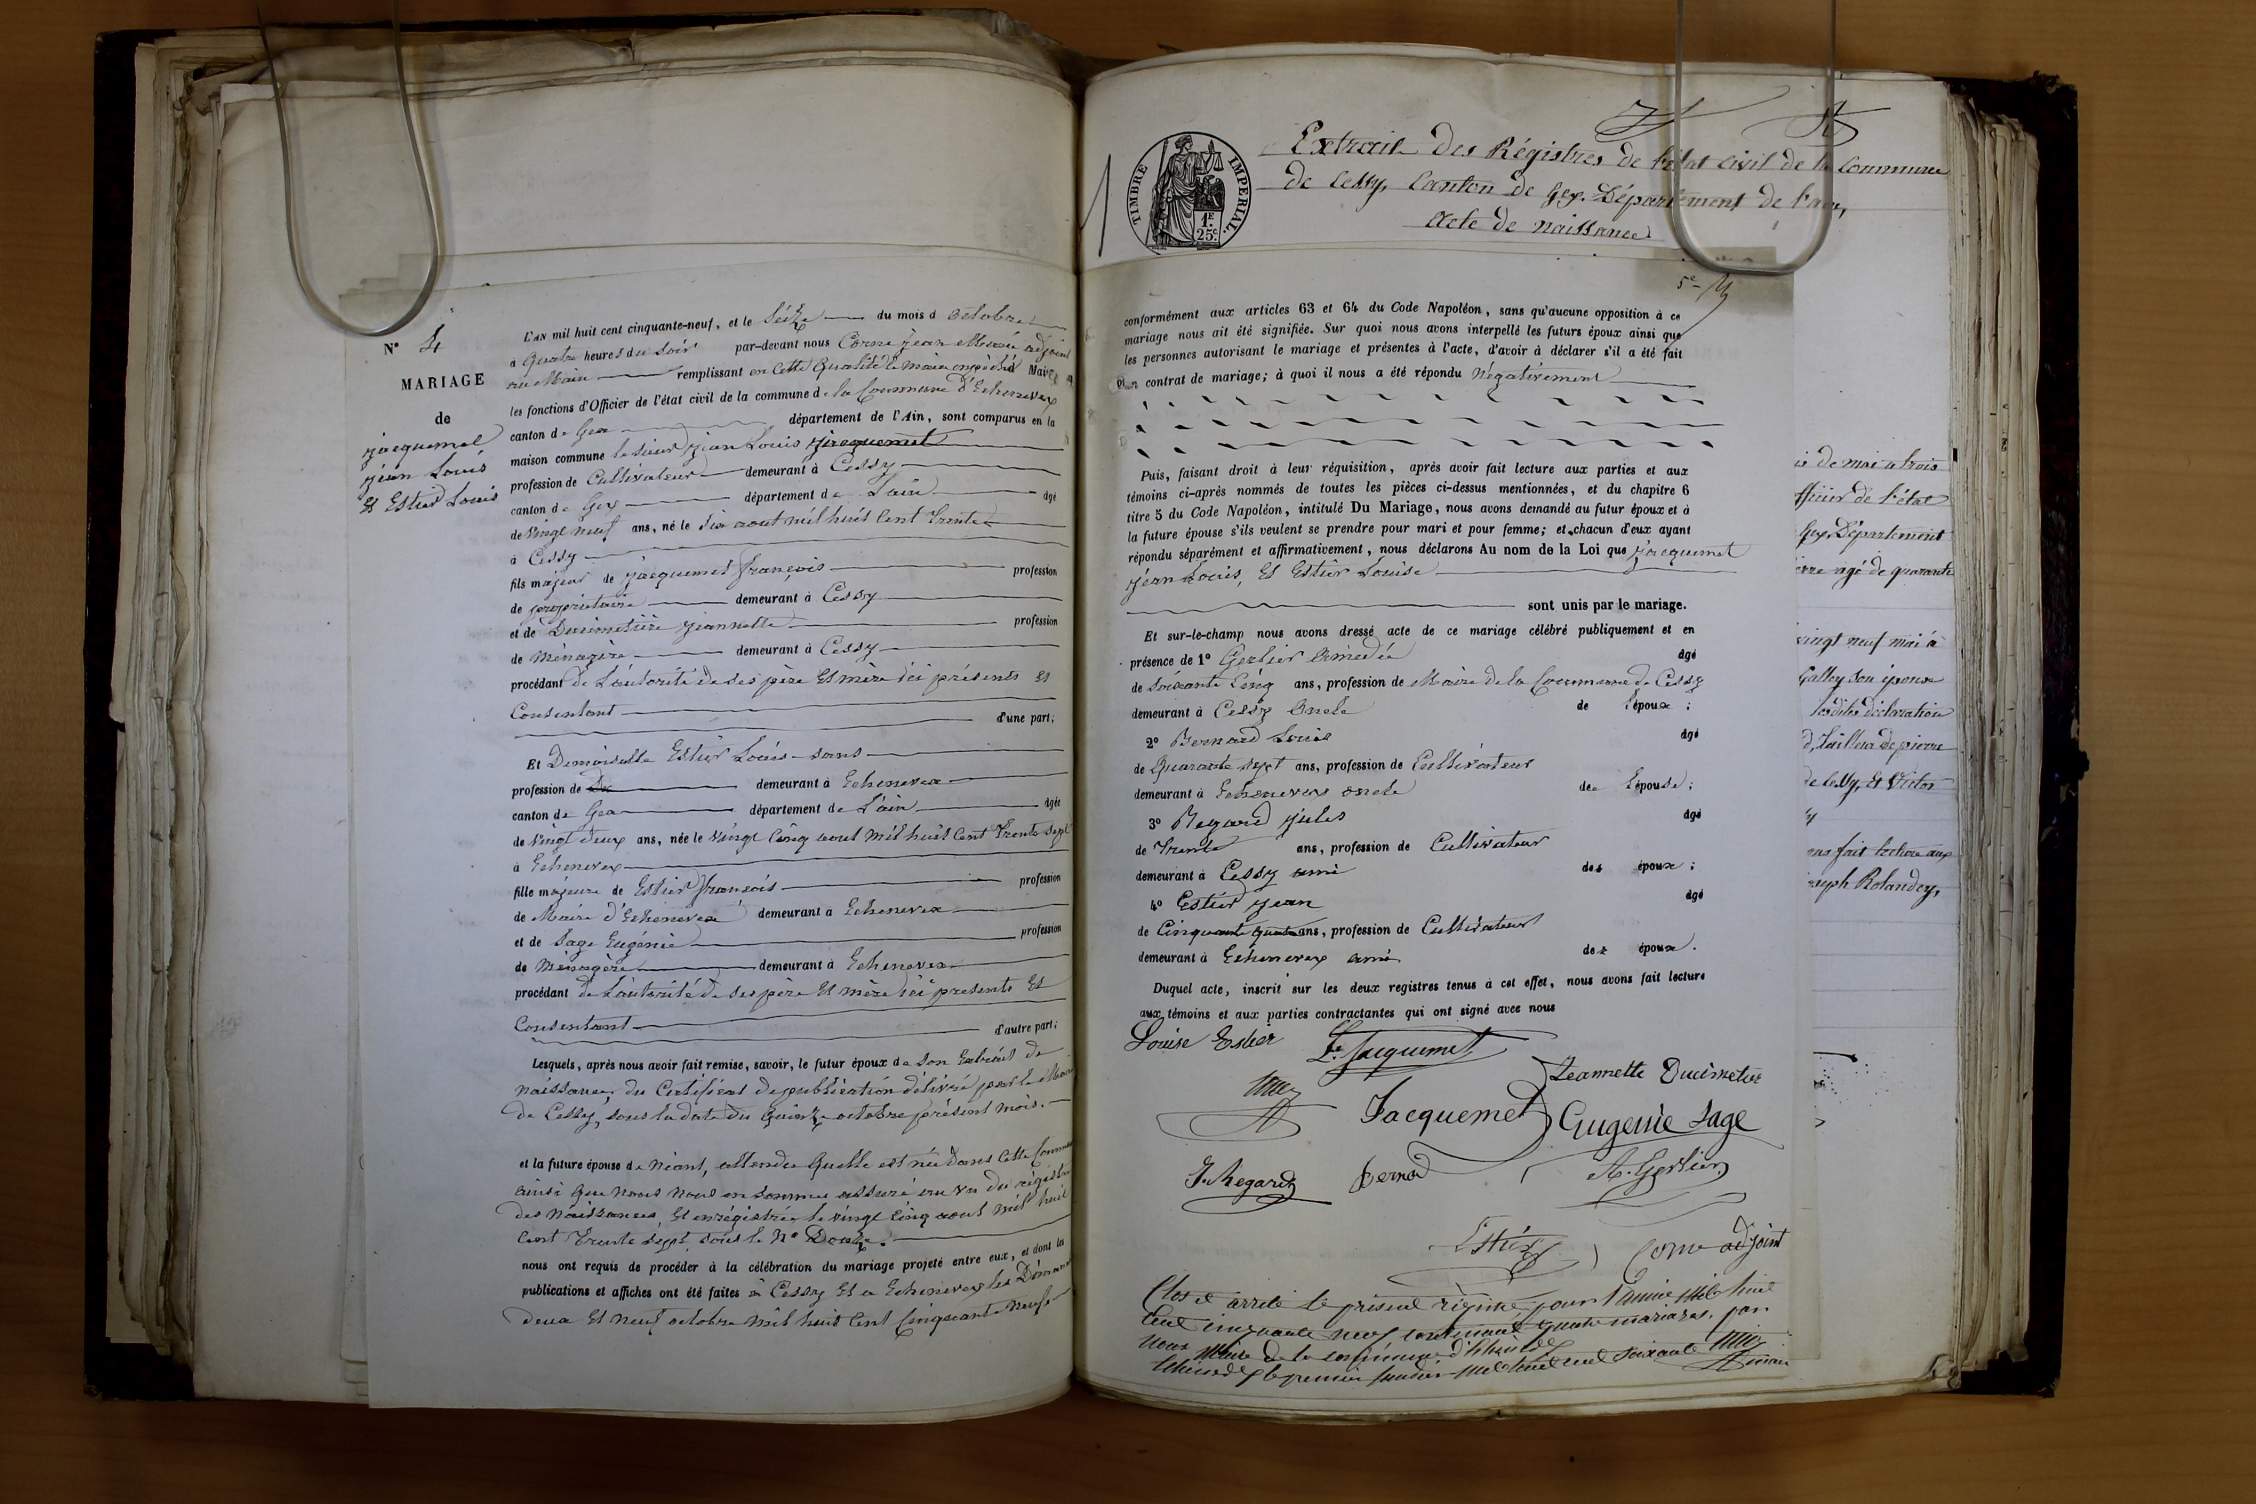 N° 4
MARIAGE
de
Jacquemet
jean Louis
Et Estier Louis
L'AN mil huit cent cinquante-neuf, et le Séize du mois d octobre
à quatre heures du soir par-devant nous Corne jean Marie adjoint
au Maire remplissant en cette qualité le maire empêché Maire
les fonctions d'Officier de l'état civil de la commune de la Commune d'Echenevex
canton de Gex département de l'Ain, sont comparus en la
maison commune le sieur jean Louis Jacquemet
profession de Cultivateur demeurant à Cessy
canton de Gex département de L'ain âgé
de vingt neuf ans, né le dix aout mil huit cent trente
à Cessy
fils majeur de Jacquemet françois profession
de propriétaire demeurant à Cessy
et de Ducimetière jeannette profession
de Ménagère demeurant à Cessy
procédant de L'autorité de ses père Et mère ici présents Et
Consentant d'une part;
Et Demoiselle Estier Louis sans
profession de demeurant à Echenevex
canton de Gex département de L'ain âgée
de vingt deux ans, née le vingt cinq aout mil huit cent trente sept
à Echenevex
fille majeure de Estier françois profession
de Maire d'Echenevex demeurant à Echenevex
et de Sage Eugénie profession
de Ménagère demeurant à Echenevex
procédant de L'autorité de ses père Et mère ici présents Et
Consentant d'autre part;
Lesquels, après nous avoir fait remise, savoir, le futur époux de son Extrait de
naissance, du Certificat de publication délivré par le Maire
de Cessy, sous la date du quinze octobre présent mois.
et la future épouse de Néant, attendu quelle est née dans cette Commune
ainsi que nous nous en sommes assuré au vu du régistre
des Naissances, Et enrégistrée le vingt cinq aout mil huit
cent trente sept sous le N° Douze.
nous ont requis de procéder à la célébration du mariage projeté entre eux, et dont les
publications et affiches ont été faites à Cessy Et a Echenevex les Dimanches
deux Et neuf octobre mil huit cent cinquante neuf
TIMBRE IMPERIAL
1F.
25c.
Extrait des Régistres de l'état civil de la Commune
de Cessy, Canton de Gex. Département de l'ain,
Acte de Naissance
conformément aux articles 63 et 64 du Code Napoléon, sans qu'aucune opposition à ce
mariage nous ait été signifiée. Sur quoi nous avons interpellé les futurs époux ainsi que
les personnes autorisant le mariage et présentes à l'acte, d'avoir à déclarer s'il a été fait
un contrat de mariage; à quoi il nous a été répondu Négativement
Puis, faisant droit à leur réquisition, après avoir fait lecture aux parties et aux
témoins ci-après nommés de toutes les pièces ci-dessus mentionnées, et du chapitre 6
titre 5 du Code Napoléon, intitulé Du Mariage, nous avons demandé au futur époux et à
la future épouse s'ils veulent se prendre pour mari et pour femme; et chacun d'eux ayant
répondu séparément et affirmativement, nous déclarons Au nom de la Loi que Jacquemet
jean Louis, Et Estier Louise
sont unis par le mariage.
Et sur-le-champ nous avons dressé acte de ce mariage célébré publiquement et en
présence de 1° Gerlier Amédée âgé
de soixante cinq ans, profession de Maire de la Commune de Cessy
demeurant à Cessy oncle de l'époux;
2° Bernard Louis âgé
de quarante sept ans, profession de Cultivateur
demeurant à Echenevex oncle de l'épouse;
3° Regard jules âgé
de trente ans, profession de Cultivateur
demeurant à Cessy ami des époux;
4° Estier jean âgé
de cinquante quatre ans, profession de Cultivateur
demeurant à Echenevex ami des époux.
Duquel acte, inscrit sur les deux registres tenus à cet effet, nous avons fait lecture
aux témoins et aux parties contractantes qui ont signé avec nous
Louise Estier
Ls. Jacquemet
Jeannette Ducimetier
Jacquemet
Eugenie Sage
J. Regard
Bernard
A. Gerlier
Estier
Corne adjoint
Clos et arreté le présent régistre pour l'année mil huit
cent cinquante neuf contenant quatre mariages, par
nous Maire de la commune d'Echenevex
Echenevex le premier janvier mil huit cent soixante
maire
is de mai a trois
officier de l'état
Gex, Département
ierre agé de quarante
vingt neuf mai à
Galley son épouse
esdites déclaration
d, tailleur de pierre
de Cessy, Et Victor
ons fait lecture aux
oseph Rolandey,